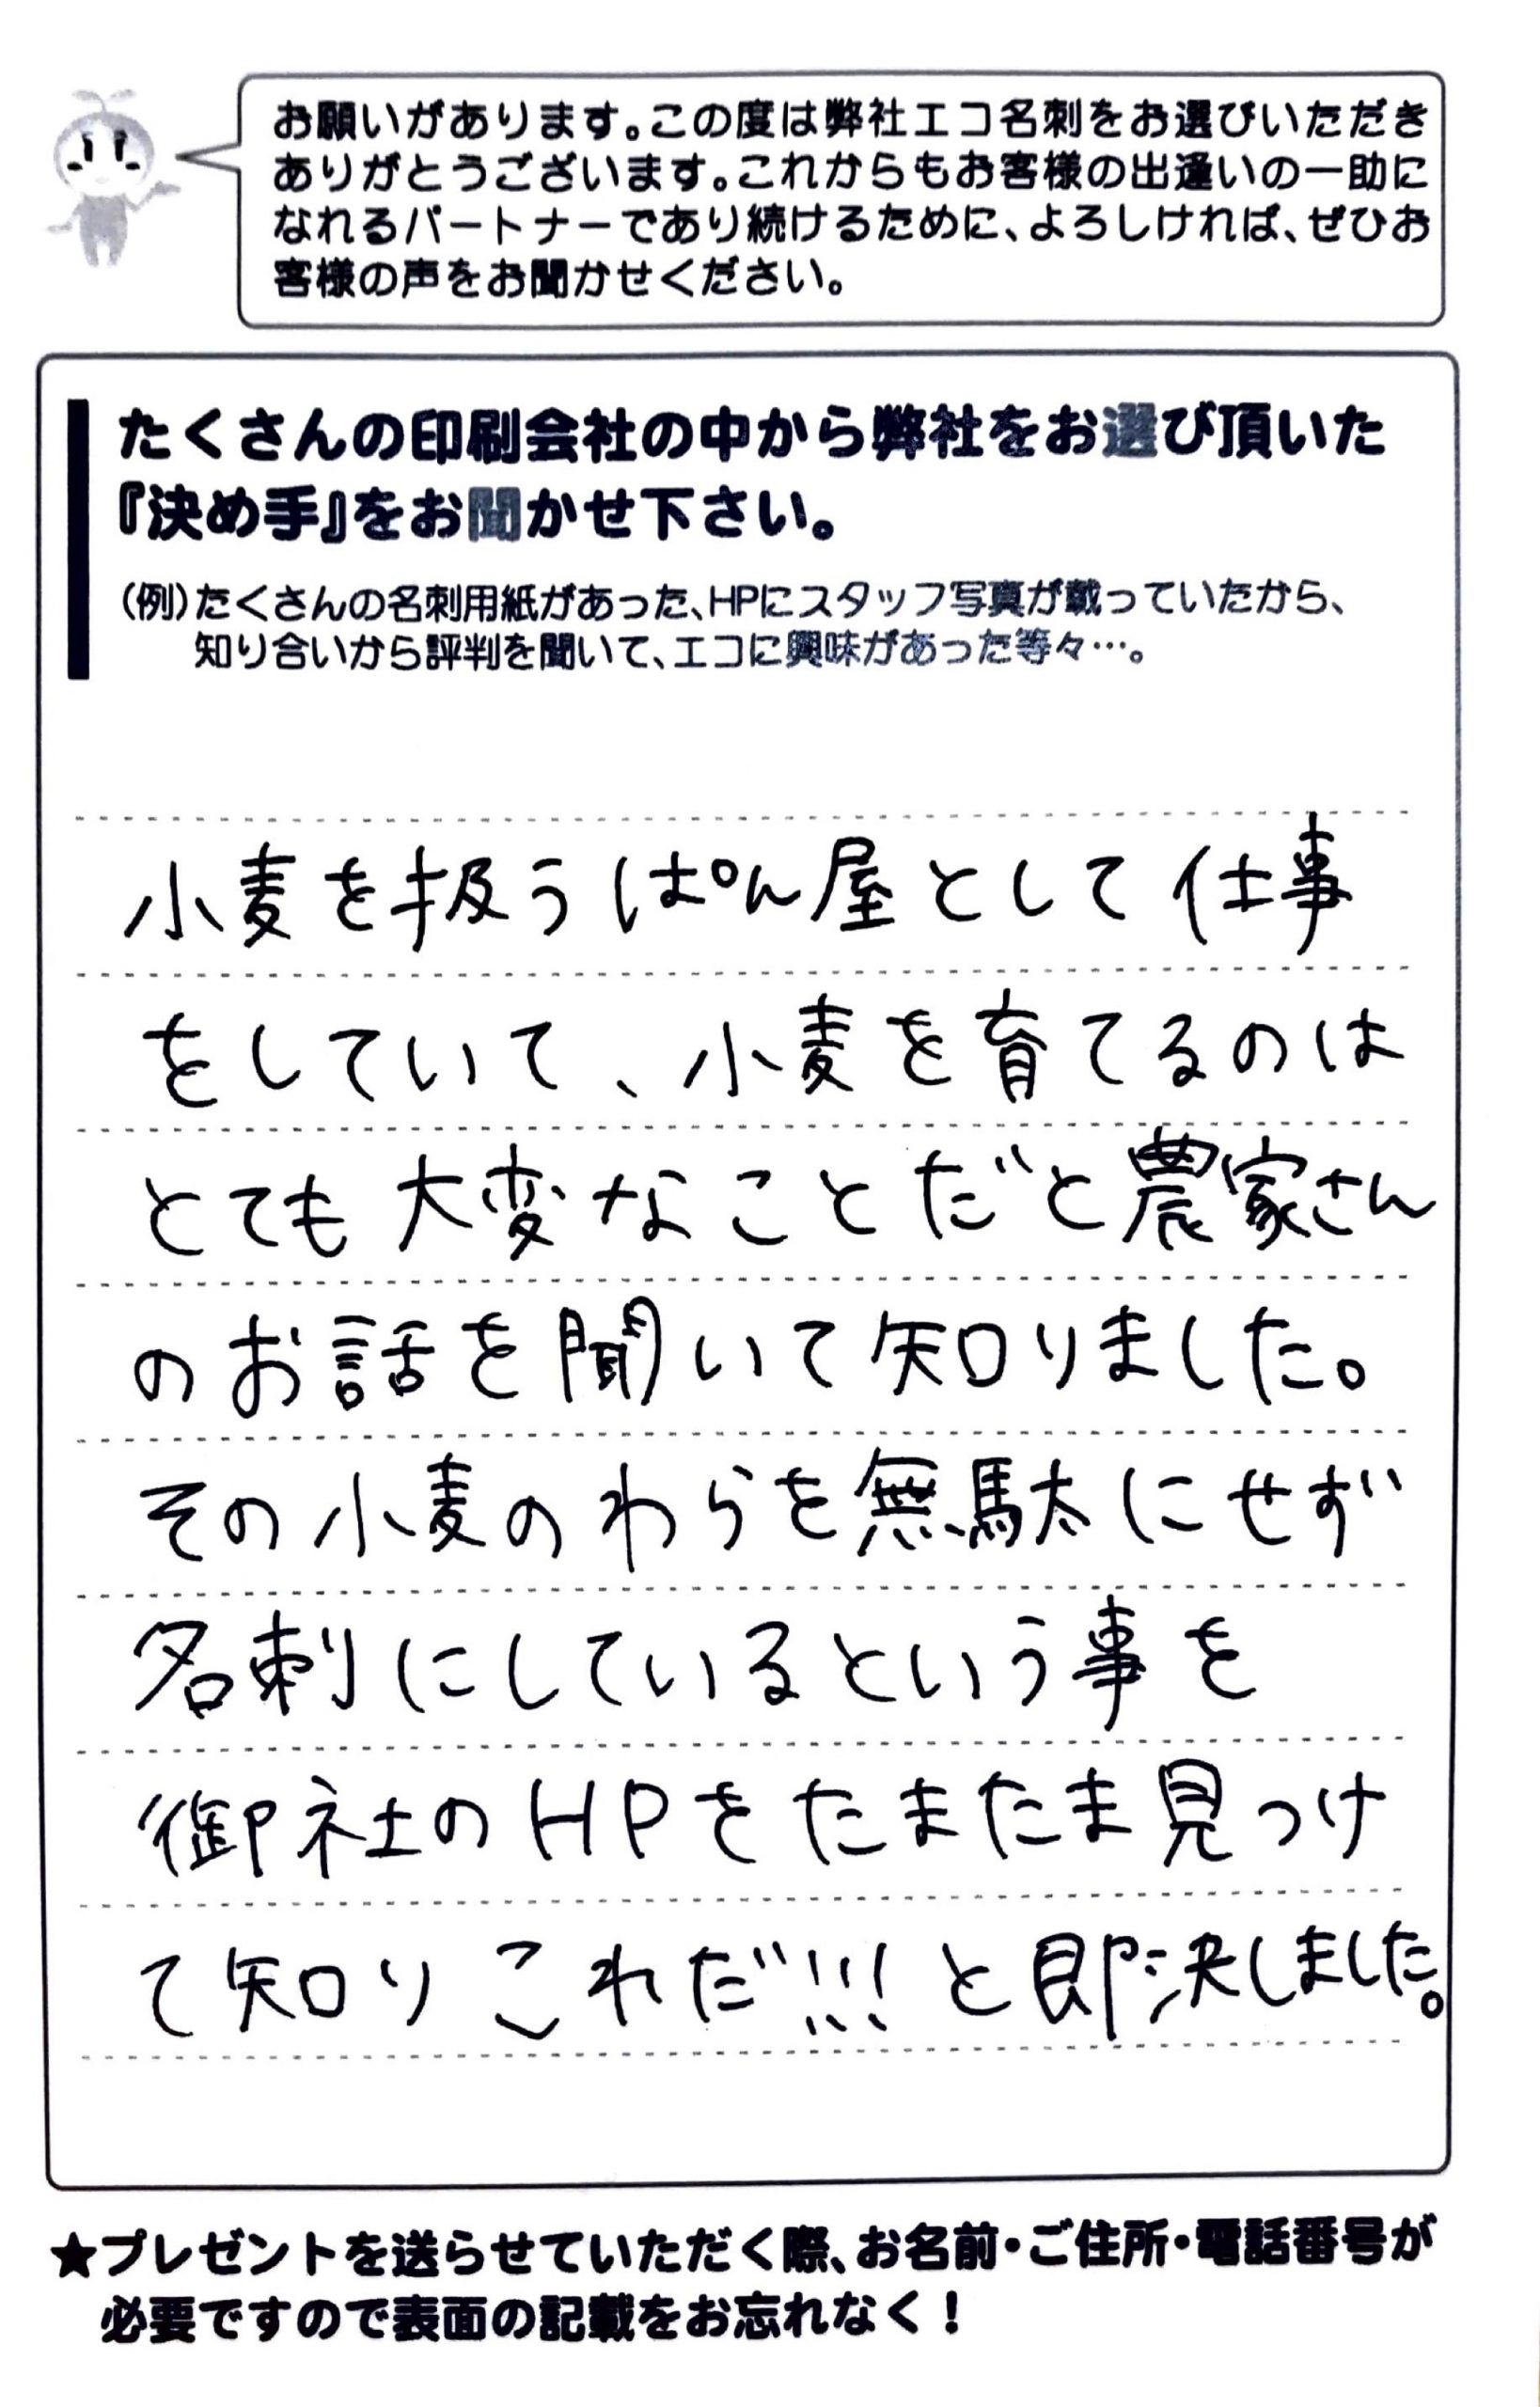 お願いがあります。この度は弊社エコ名刺をお選びいただき
ありがとうございます。これからもお客様の出逢いの一助に
なれるパートナーであり続けるために、よろしければ、ぜひお
客様の声をお聞かせください。
たくさんの印刷会社の中から弊社をお選び頂いた
『決め手』をお聞かせ下さい。
(例)たくさんの名刺用紙があった、HPにスタッフ写真が載っていたから、
知り合いから評判を聞いて、エコに興味があった等々…。
小麦を扱うぱん屋として仕事
をしていて、小麦を育てるのは
とても大変なことだと農家さん
のお話を聞いて知りました。
その小麦のわらを無駄にせず
名刺にしているという事を
御社のHPをたまたま見つけ
て知りこれだ!!!と即決しました。
★プレゼントを送らせていただく際、お名前・ご住所・電話番号が
必要ですので表面の記載をお忘れなく!